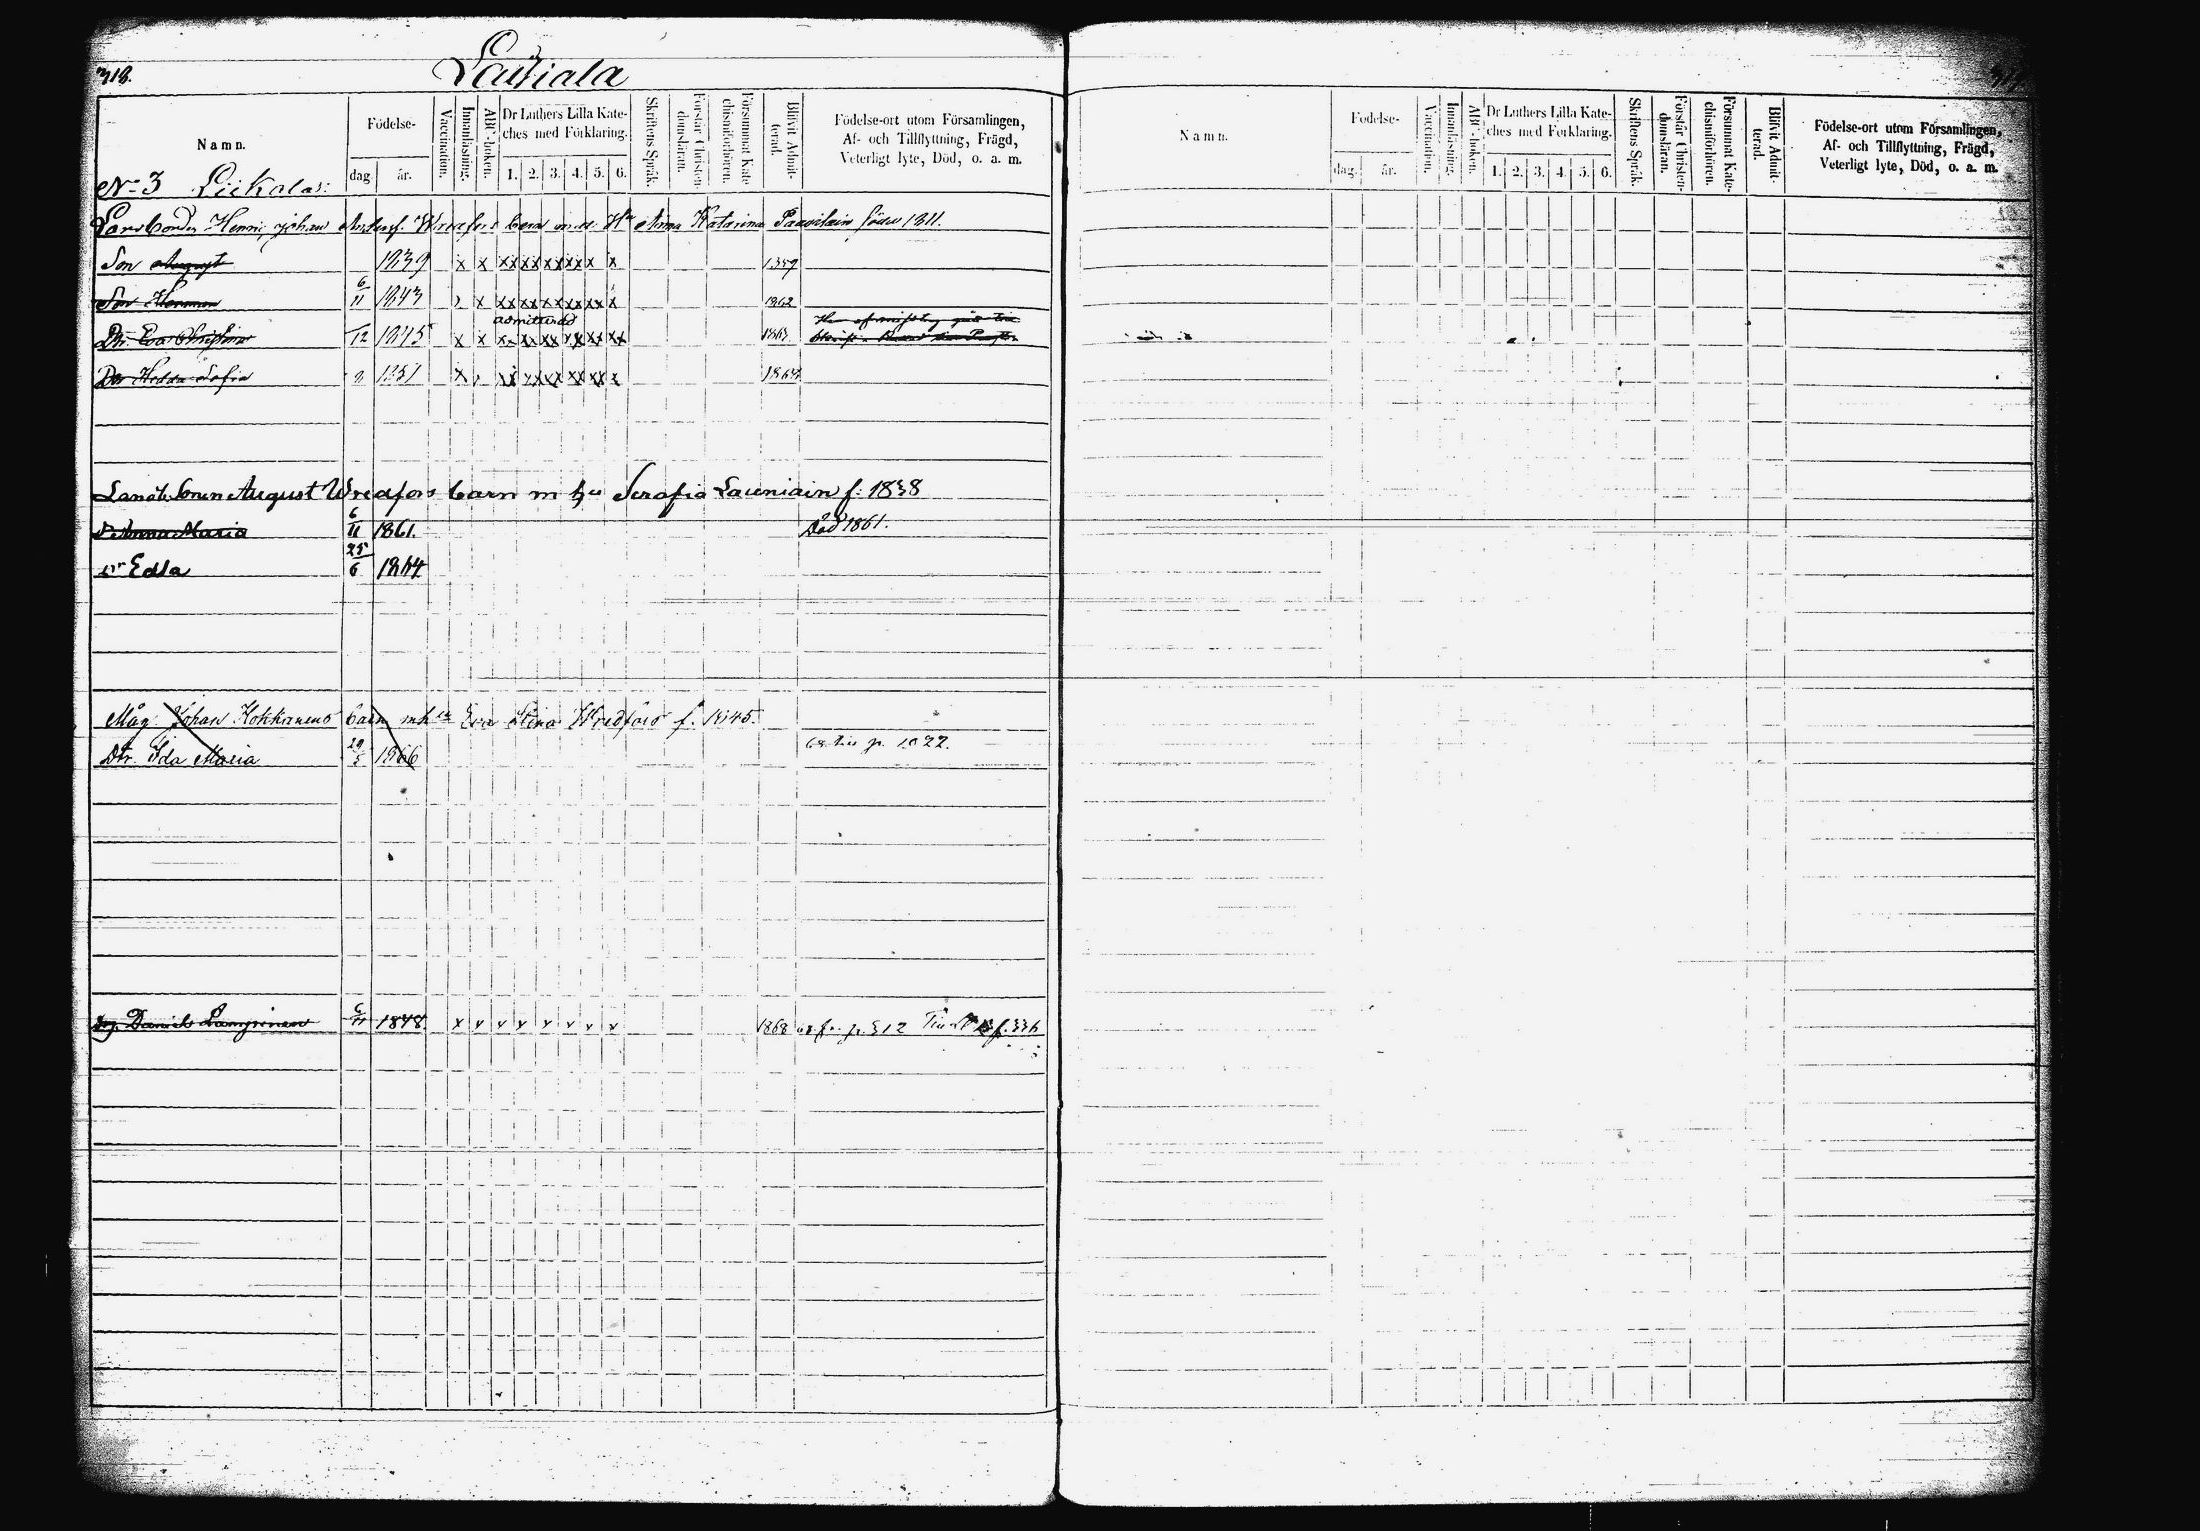 318.
Lausiala
Namn.
Födelse-
dag
år.
Vaccination.
Innanläsning.
ABC-boken.
Dr Luthers Lilla Kate-
ches med Förklaring.
1. 2. 3. 4. 5. 6.
Skriftens Språk.
Förstår Christen-
domsläran.
Försummat Kate-
chismiförhören.
Blifvit Admit-
terad.
Födelse-ort utom Församlingen,
Af- och Tillflyttning, Frägd,
Veterligt lyte, Död, o. a. m.
No 3 Liikala:
Henric Johan Wredfors barn m. Hu Anna Katarina född 1811.
Son August 1839 x x xx xx xx xx x x 1859
Son Herman 6/11 1843 x xx xx xx xx xx x 1862
admitterad
Dr. Eva Christina 12 1845 x x x xx xx xx xx xx 1863
Dr Hedda Sofia 1851 x xx xx xx xx xx x 1868
Landb. Sonen August Wredfors barn m hu Serafia Launiain f: 1838
Dr Anna Maria 6/11 1861. död 1861.
Dr Edla 25/6 1864
Måg Johan Kokkonens barn m h Eva Stina Wredfors f. 1845.
Dtr. Ida Maria 29/5 1866 p. 1022.
Daniel Lampinen 6/11 1848 x v v v v v v v 1868 p. 312 f. 336
Namn.
Födelse-
dag.
år.
Vaccination.
Innanläsning.
ABC-boken.
Dr Luthers Lilla Kate-
ches med Förklaring.
1. 2. 3. 4. 5. 6.
Skriftens Språk.
Förstår Christen-
domsläran.
Försummat Kate-
chismiförhören.
Blifvit Admit-
terad.
Födelse-ort utom Församlingen,
Af- och Tillflyttning, Frägd,
Veterligt lyte, Död, o. a. m.